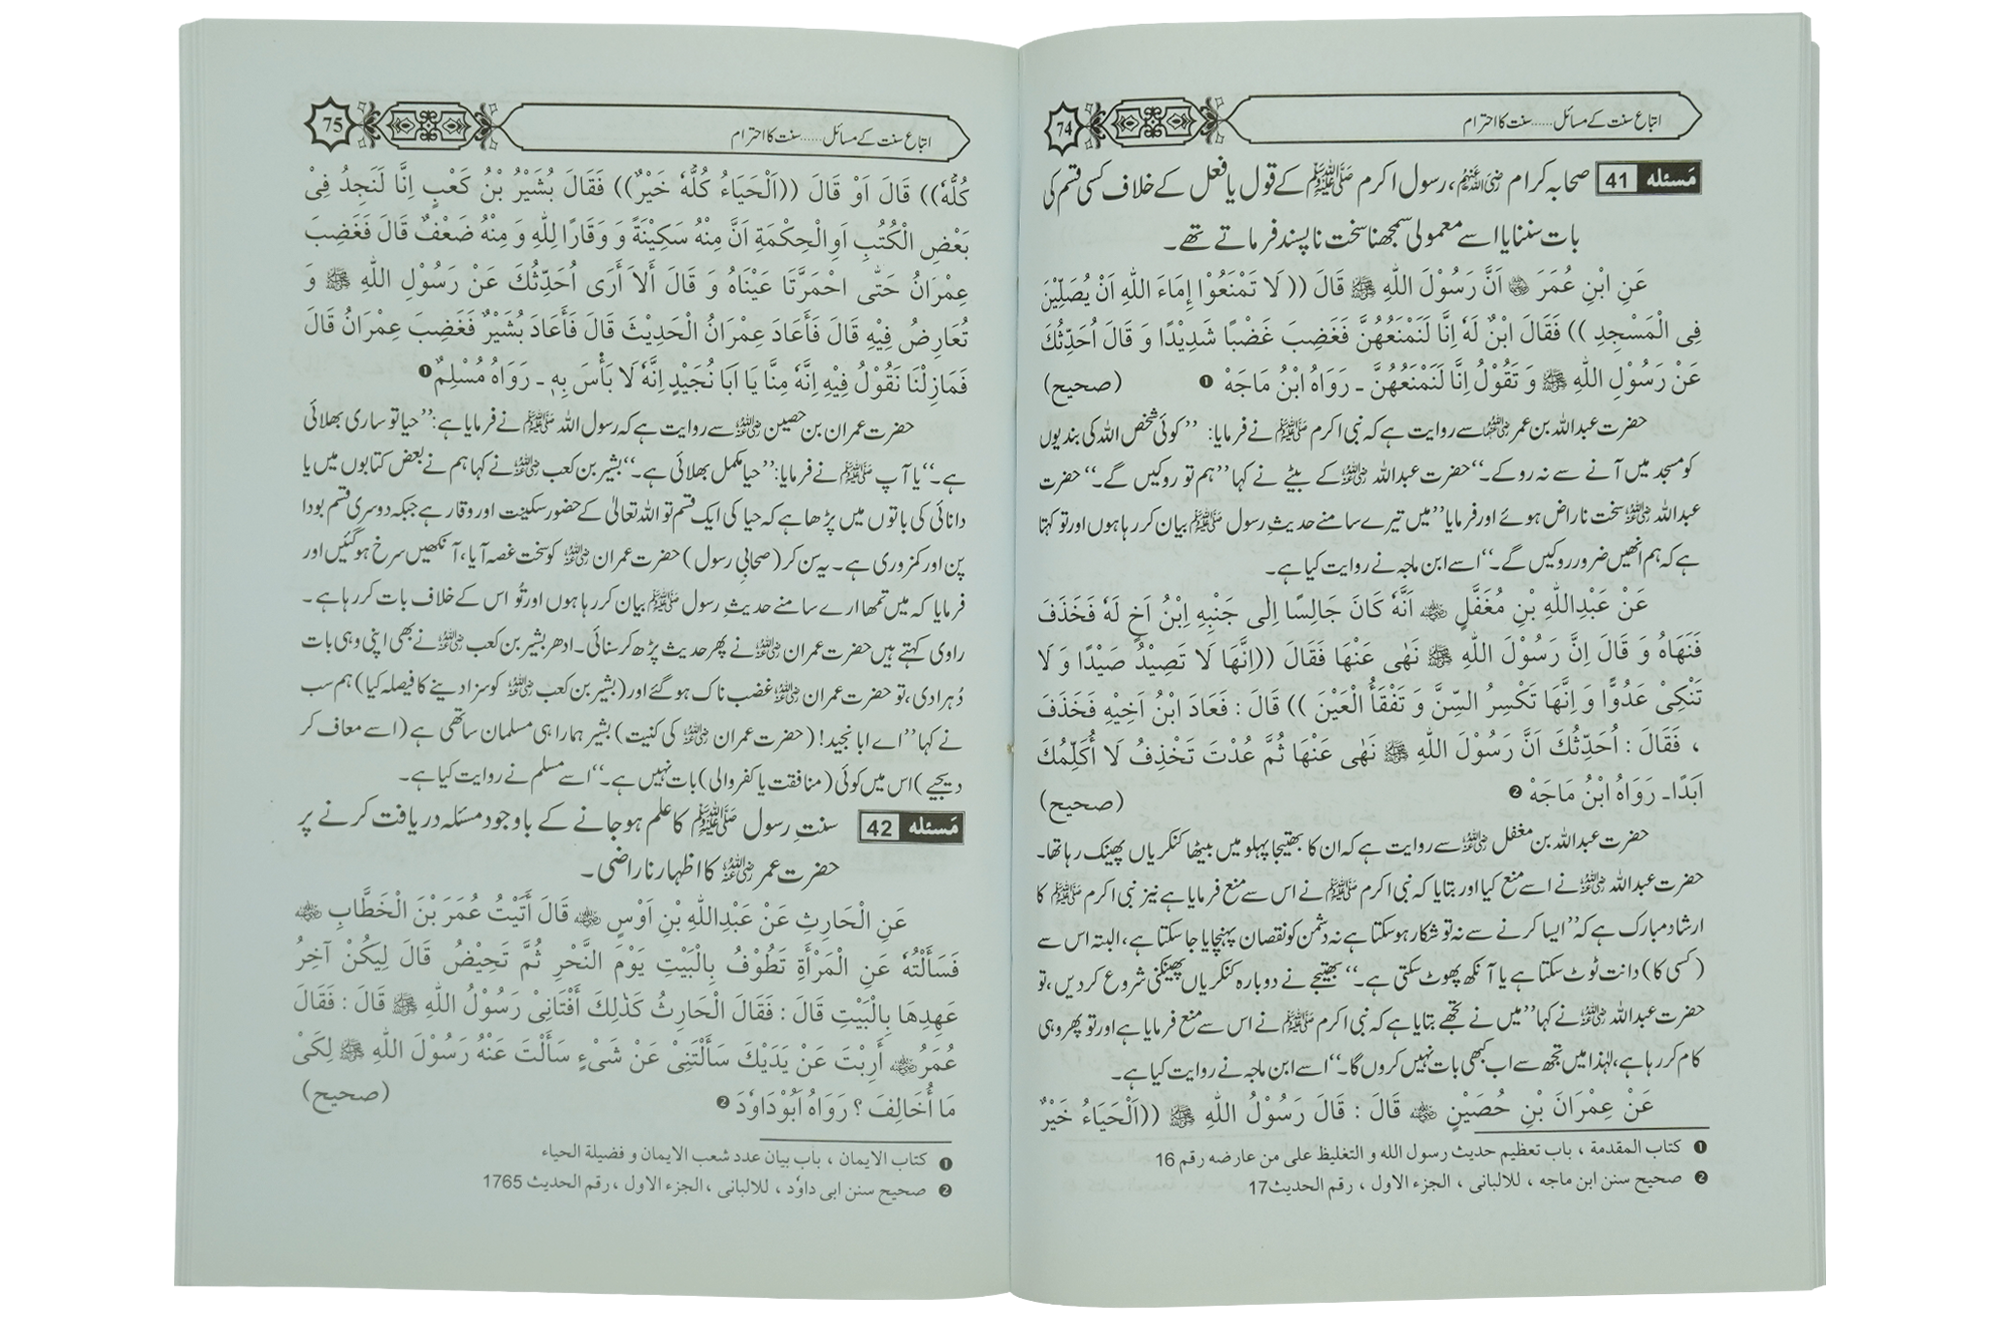 اتباع سنت کے مسائل......سنت کا احترام
74
مسئلہ 41 صحابہ کرام رضی اللہ عنہم، رسول اکرم ﷺ کے قول یا فعل کے خلاف کسی قسم کی
بات سننا یا اسے معمولی سمجھنا سخت ناپسند فرماتے تھے۔
عَنِ ابْنِ عُمَرَ ؓ اَنَّ رَسُوْلَ اللّٰهِ ﷺ قَالَ (( لَا تَمْنَعُوْا إِمَاءَ اللّٰهِ اَنْ يُصَلِّيْنَ
فِى الْمَسْجِدِ )) فَقَالَ ابْنٌ لَهٗ اِنَّا لَنَمْنَعُهُنَّ فَغَضِبَ غَضْبًا شَدِيْدًا وَ قَالَ اُحَدِّثُكَ
عَنْ رَسُوْلِ اللّٰهِ ﷺ وَ تَقُوْلُ اِنَّا لَنَمْنَعُهُنَّ ۔ رَوَاهُ ابْنُ مَاجَهْ ❶ (صحيح)
حضرت عبداللہ بن عمر رضی اللہ عنہما سے روایت ہے کہ نبی اکرم ﷺ نے فرمایا: ’’کوئی شخص اللہ کی بندیوں
کو مسجد میں آنے سے نہ روکے۔‘‘ حضرت عبداللہ رضی اللہ عنہ کے بیٹے نے کہا ’’ہم تو روکیں گے۔‘‘ حضرت
عبداللہ رضی اللہ عنہ سخت ناراض ہوئے اور فرمایا ’’میں تیرے سامنے حدیثِ رسول ﷺ بیان کر رہا ہوں اور تو کہتا
ہے کہ ہم انھیں ضرور روکیں گے۔‘‘ اسے ابن ماجہ نے روایت کیا ہے۔
عَنْ عَبْدِاللّٰهِ بْنِ مُغَفَّلٍ ؓ اَنَّهٗ كَانَ جَالِسًا اِلٰى جَنْبِهِ اِبْنُ اَخٍ لَهٗ فَخَذَفَ
فَنَهَاهُ وَ قَالَ اِنَّ رَسُوْلَ اللّٰهِ ﷺ نَهٰى عَنْهَا فَقَالَ ((اِنَّهَا لَا تَصِيْدُ صَيْدًا وَ لَا
تَنْكِىْ عَدُوًّا وَ اِنَّهَا تَكْسِرُ السِّنَّ وَ تَفْقَأُ الْعَيْنَ )) قَالَ : فَعَادَ ابْنُ اَخِيْهِ فَخَذَفَ
، فَقَالَ : اُحَدِّثُكَ اَنَّ رَسُوْلَ اللّٰهِ ﷺ نَهٰى عَنْهَا ثُمَّ عُدْتَ تَخْذِفُ لَا أُكَلِّمُكَ
اَبَدًا۔ رَوَاهُ ابْنُ مَاجَهْ ❷ (صحيح)
حضرت عبداللہ بن مغفل رضی اللہ عنہ سے روایت ہے کہ ان کا بھتیجا پہلو میں بیٹھا کنکریاں پھینک رہا تھا۔
حضرت عبداللہ رضی اللہ عنہ نے اسے منع کیا اور بتایا کہ نبی اکرم ﷺ نے اس سے منع فرمایا ہے نیز نبی اکرم ﷺ کا
ارشاد مبارک ہے کہ ’’ایسا کرنے سے نہ تو شکار ہو سکتا ہے نہ دشمن کو نقصان پہنچایا جا سکتا ہے، البتہ اس سے
(کسی کا) دانت ٹوٹ سکتا ہے یا آنکھ پھوٹ سکتی ہے۔‘‘ بھتیجے نے دوبارہ کنکریاں پھینکنی شروع کر دیں، تو
حضرت عبداللہ رضی اللہ عنہ نے کہا ’’میں نے تجھے بتایا ہے کہ نبی اکرم ﷺ نے اس سے منع فرمایا ہے اور تو پھر وہی
کام کر رہا ہے، لہٰذا میں تجھ سے اب کبھی بات نہیں کروں گا۔‘‘ اسے ابن ماجہ نے روایت کیا ہے۔
عَنْ عِمْرَانَ بْنِ حُصَيْنٍ ؓ قَالَ : قَالَ رَسُوْلُ اللّٰهِ ﷺ ((اَلْحَيَاءُ خَيْرٌ
❶ كتاب المقدمة ، باب تعظيم حديث رسول الله و التغليظ على من عارضه رقم 16
❷ صحيح سنن ابن ماجه ، للالبانى ، الجزء الاول ، رقم الحديث17
اتباع سنت کے مسائل......سنت کا احترام
75
كُلُّهٗ)) قَالَ اَوْ قَالَ ((اَلْحَيَاءُ كُلُّهٗ خَيْرٌ)) فَقَالَ بُشَيْرُ بْنُ كَعْبٍ اِنَّا لَنَجِدُ فِىْ
بَعْضِ الْكُتُبِ اَوِالْحِكْمَةِ اَنَّ مِنْهُ سَكِيْنَةً وَ وَقَارًا لِلّٰهِ وَ مِنْهُ ضَعْفٌ قَالَ فَغَضِبَ
عِمْرَانُ حَتّٰى احْمَرَّتَا عَيْنَاهُ وَ قَالَ أَلاَ أَرٰى اُحَدِّثُكَ عَنْ رَسُوْلِ اللّٰهِ ﷺ وَ
تُعَارِضُ فِيْهِ قَالَ فَأَعَادَ عِمْرَانُ الْحَدِيْثَ قَالَ فَأَعَادَ بُشَيْرٌ فَغَضِبَ عِمْرَانُ قَالَ
فَمَازِلْنَا نَقُوْلُ فِيْهِ اِنَّهٗ مِنَّا يَا اَبَا نُجَيْدٍ اِنَّهٗ لَا بَأْسَ بِهٖ ۔ رَوَاهُ مُسْلِمٌ ❶
حضرت عمران بن حصین رضی اللہ عنہ سے روایت ہے کہ رسول اللہ ﷺ نے فرمایا ہے: ’’حیا تو ساری بھلائی
ہے۔‘‘ یا آپ ﷺ نے فرمایا: ’’حیا مکمل بھلائی ہے۔‘‘ بشیر بن کعب رضی اللہ عنہ نے کہا ہم نے بعض کتابوں میں یا
دانائی کی باتوں میں پڑھا ہے کہ حیا کی ایک قسم تو اللہ تعالیٰ کے حضور سکینت اور وقار ہے جبکہ دوسری قسم بودا
پن اور کمزوری ہے۔ یہ سن کر (صحابیِ رسول) حضرت عمران رضی اللہ عنہ کو سخت غصہ آیا، آنکھیں سرخ ہو گئیں اور
فرمایا کہ میں تمھاارے سامنے حدیثِ رسول ﷺ بیان کر رہا ہوں اور تُو اس کے خلاف بات کر رہا ہے۔
راوی کہتے ہیں حضرت عمران رضی اللہ عنہ نے پھر حدیث پڑھ کر سنائی۔ ادھر بشیر بن کعب رضی اللہ عنہ نے بھی اپنی وہی بات
دُہرا دی، تو حضرت عمران رضی اللہ عنہ غضب ناک ہو گئے اور (بشیر بن کعب رضی اللہ عنہ کو سزا دینے کا فیصلہ کیا) ہم سب
نے کہا ’’اے ابا نجید! (حضرت عمران رضی اللہ عنہ کی کنیت) بشیر ہمارا ہی مسلمان ساتھی ہے (اسے معاف کر
دیجیے) اس میں کوئی (منافقت یا کفر والی) بات نہیں ہے۔‘‘ اسے مسلم نے روایت کیا ہے۔
مسئلہ 42 سنتِ رسول ﷺ کا علم ہو جانے کے باوجود مسئلہ دریافت کرنے پر
حضرت عمر رضی اللہ عنہ کا اظہار ناراضی۔
عَنِ الْحَارِثِ عَنْ عَبْدِاللّٰهِ بْنِ اَوْسٍ ؓ قَالَ أَتَيْتُ عُمَرَ بْنَ الْخَطَّابِ ؓ
فَسَأَلْتُهٗ عَنِ الْمَرْأَةِ تَطُوْفُ بِالْبَيْتِ يَوْمَ النَّحْرِ ثُمَّ تَحِيْضُ قَالَ لِيَكُنْ آخِرُ
عَهِدِهَا بِالْبَيْتِ قَالَ : فَقَالَ الْحَارِثُ كَذٰلِكَ أَفْتَانِىْ رَسُوْلُ اللّٰهِ ﷺ قَالَ : فَقَالَ
عُمَرُ ؓ أَرِبْتَ عَنْ يَدَيْكَ سَأَلْتَنِىْ عَنْ شَىْءٍ سَأَلْتَ عَنْهُ رَسُوْلَ اللّٰهِ ﷺ لِكَىْ
مَا أُخَالِفَ ؟ رَوَاهُ اَبُوْدَاوٗدَ ❷ (صحيح)
❶ كتاب الايمان ، باب بيان عدد شعب الايمان و فضيلة الحياء
❷ صحيح سنن ابى داوٗد ، للالبانى ، الجزء الاول ، رقم الحديث 1765